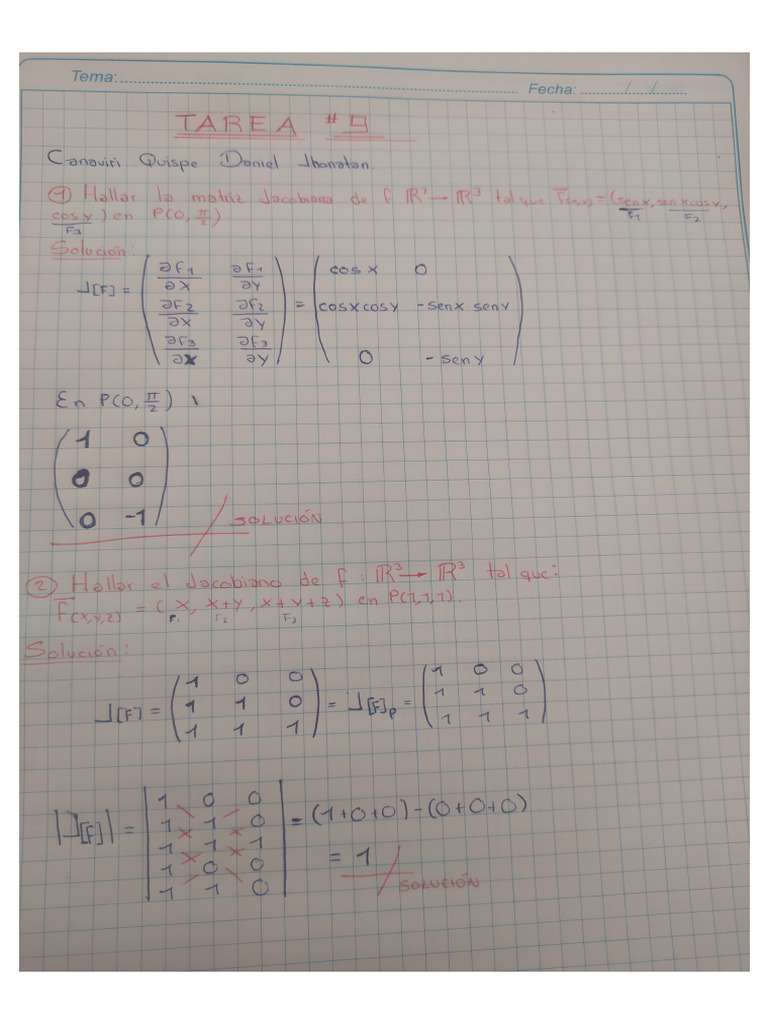 Tema: ........ Fecha: ....../....../......
TAREA #9
Canaviri Quispe Daniel Jhonatan.
① Hallar la matriz Jacobiana de f ℝ² → ℝ³ tal que F̅(x,y) = (senx, senxcosy,
F1 F2
cosy) en P(0, π/2)
F3
Solución:
J[F] = (∂F1/∂X ∂F1/∂Y; ∂F2/∂X ∂F2/∂Y; ∂F3/∂X ∂F3/∂Y) = (cosx 0; cosxcosy -senx seny; 0 -seny)
En P(0, π/2)
(1 0; 0 0; 0 -1)
SOLUCIÓN
② Hallar el Jacobiano de f: ℝ³ → ℝ³ tal que:
F̅(x,y,z) = (x, x+y, x+y+z) en P(1,1,1).
F1 F2 F3
Solución:
J[F] = (1 0 0; 1 1 0; 1 1 1) = J[F]p = (1 0 0; 1 1 0; 1 1 1)
|J[F]| = |1 0 0; 1 1 0; 1 1 1; 1 0 0; 1 1 0| = (1+0+0)-(0+0+0)
= 1
SOLUCIÓN